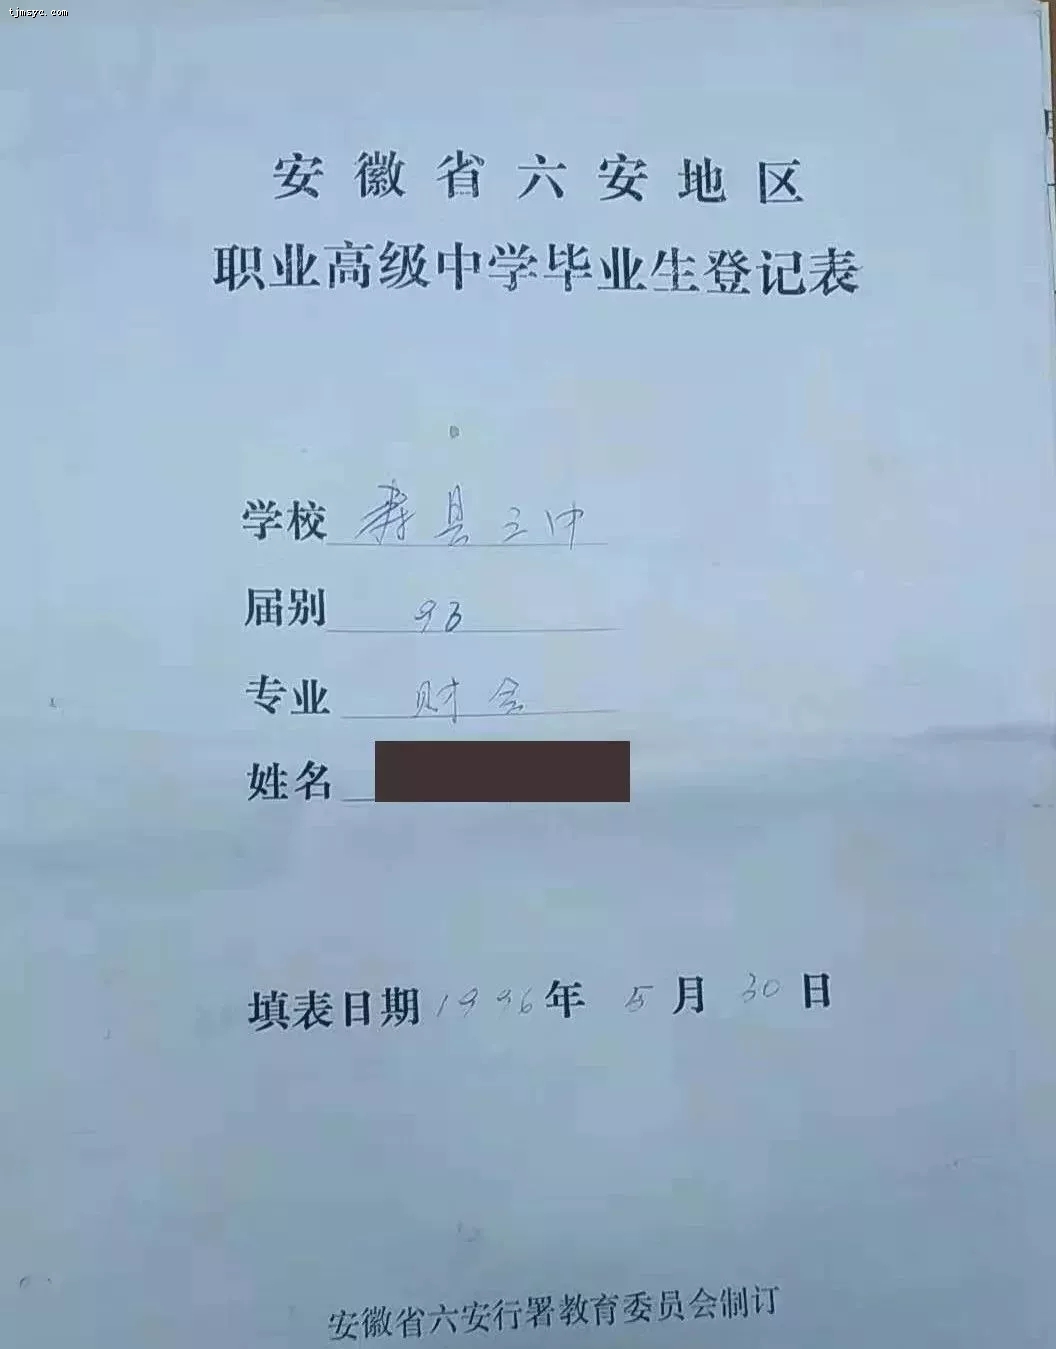 tjmsyc.com
安徽省六安地区
职业高级中学毕业生登记表
学校 寿县三中
届别 93
专业 财会
姓名
填表日期 1996年 5月 30日
安徽省六安行署教育委员会制订